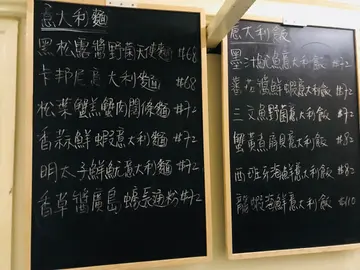 意大利麵
黑松露醬野菌天使麵 #68
卡邦尼意大利麵 #68
松葉蟹羔蟹肉闊條麵 #72
香蒜鮮蝦意大利麵 #72
明太子鮮魷意大利麵 #72
香草醬廣島蠔長通粉 #72
意大利飯
墨汁魷魚意大利飯 #72
蕃茄醬鮮蝦意大利飯 #72
三文魚野菌意大利飯
蟹黃煮扇貝意大利飯 #82
西班牙海鮮意大利飯 #82
龍蝦海鮮意大利飯 #110